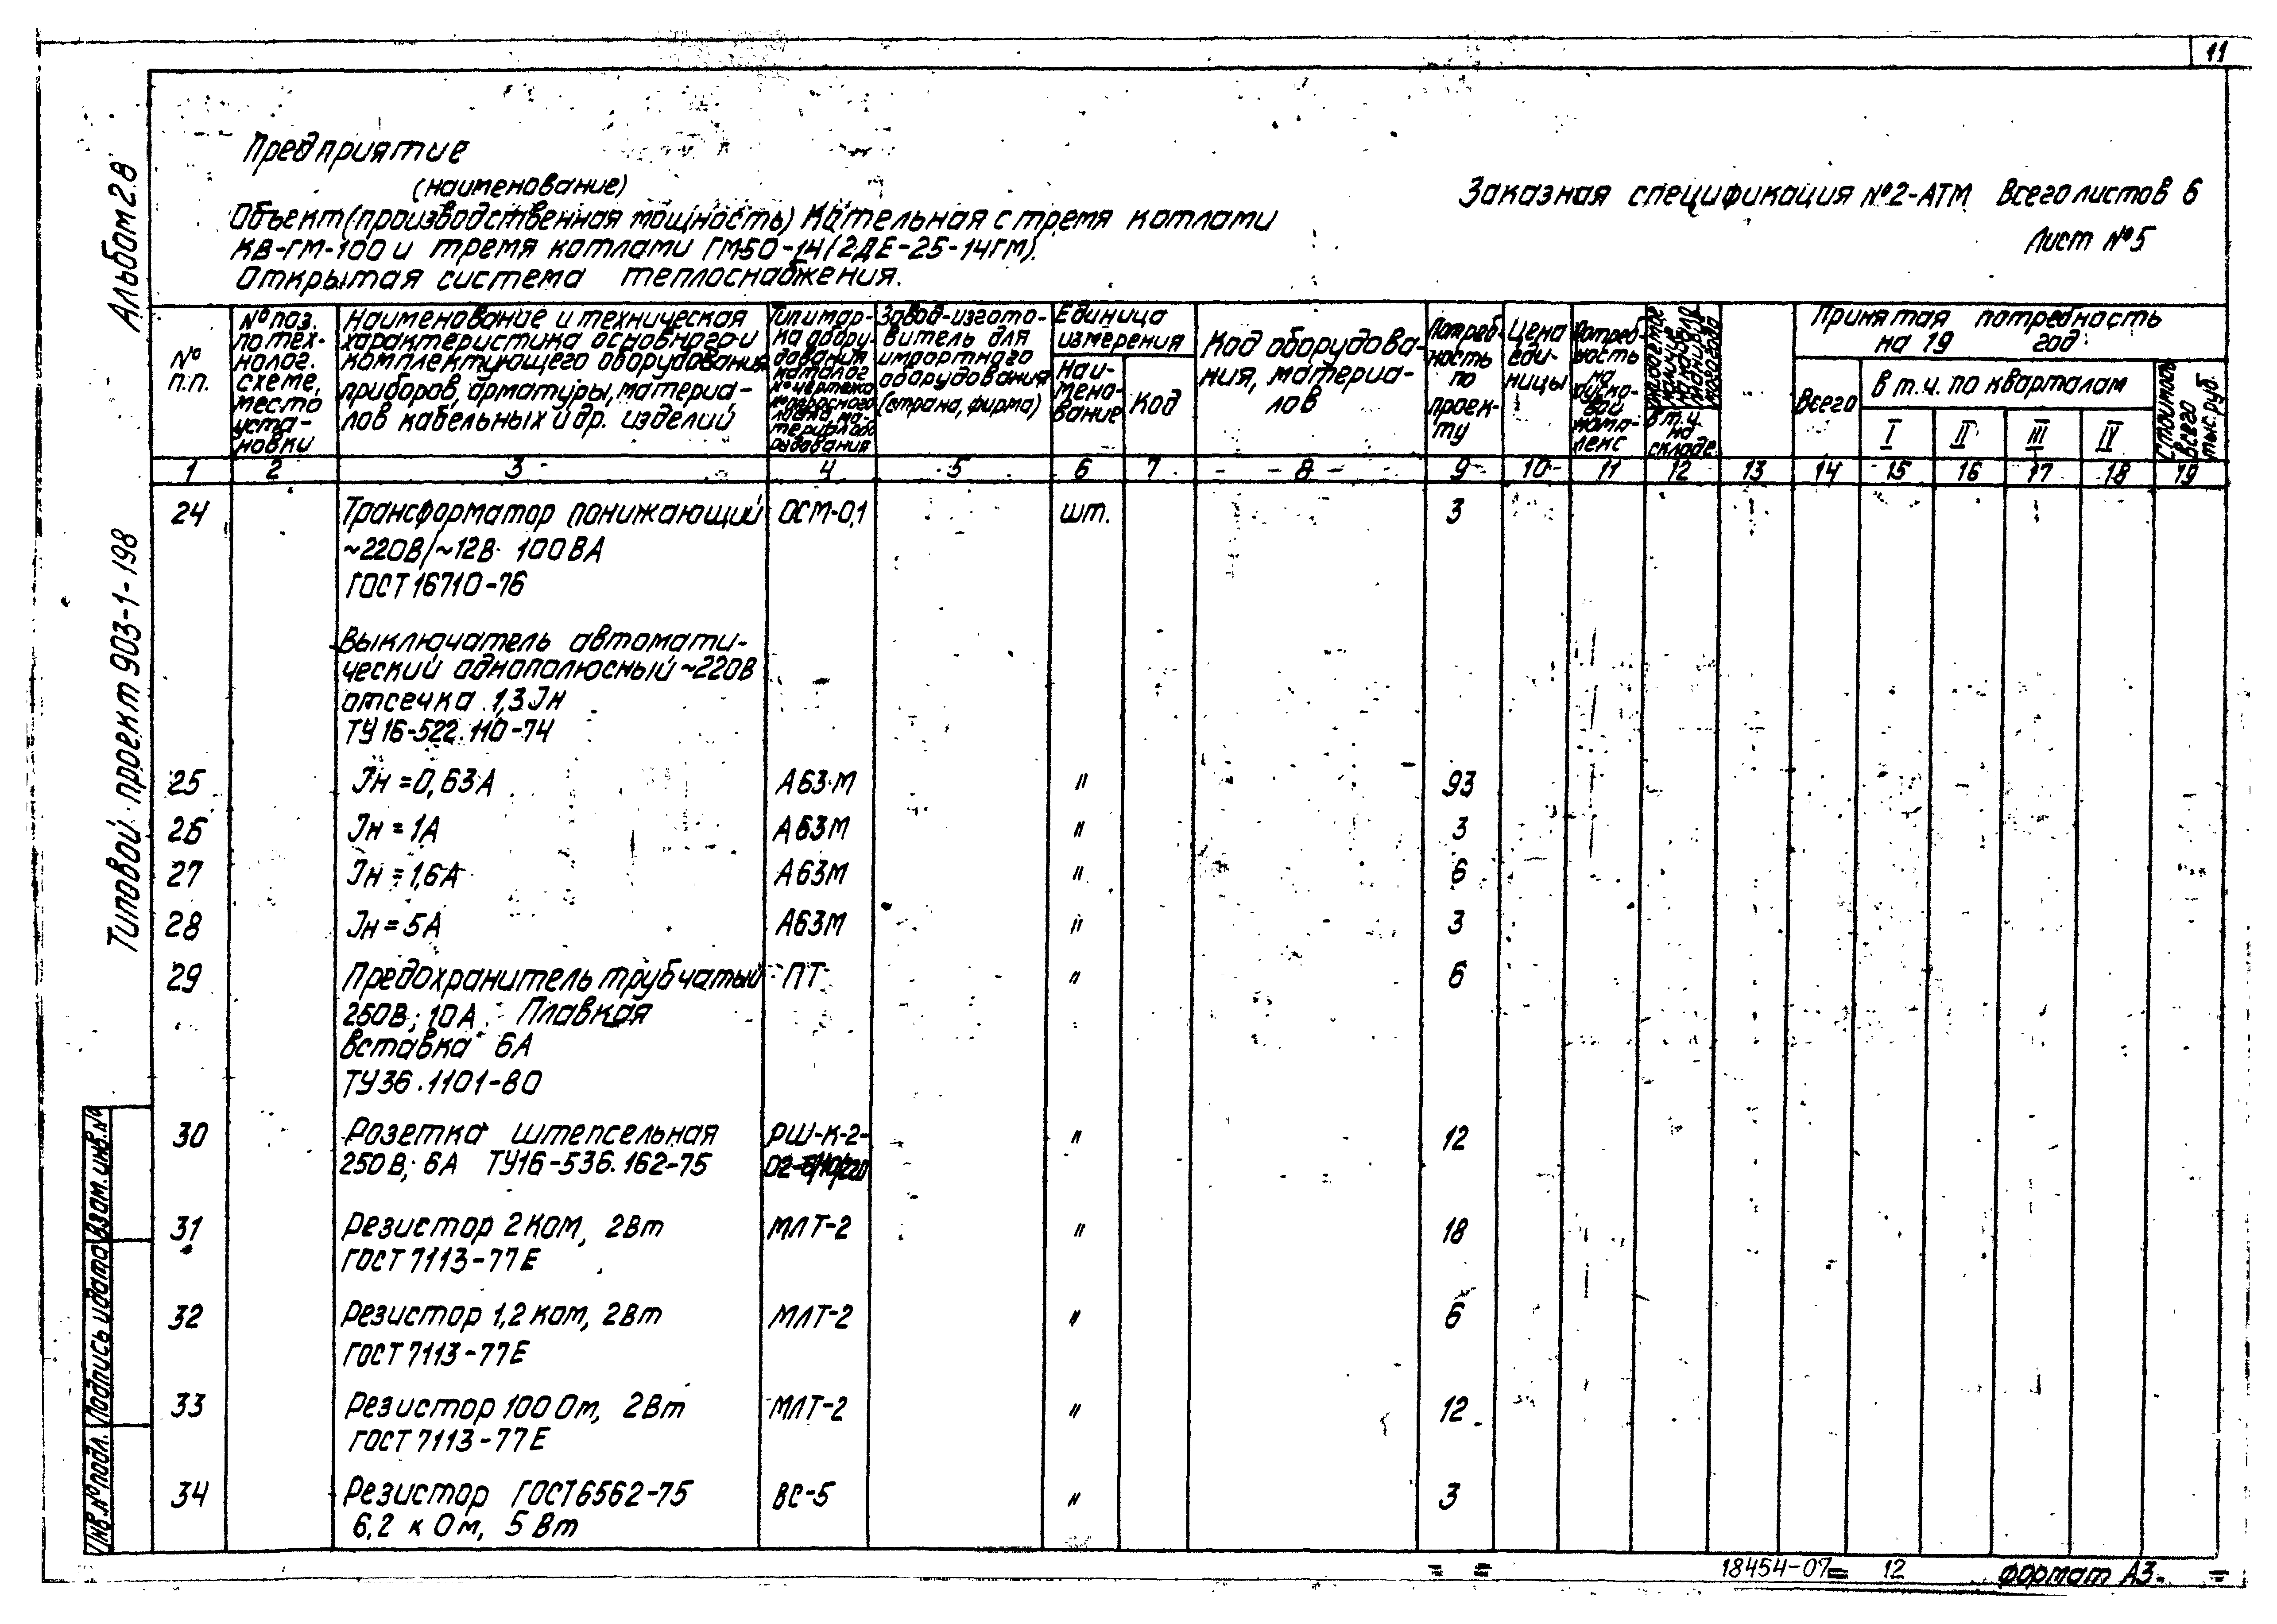 11
Предприятие
(наименование)
Объект (производственная мощность) Котельная с тремя котлами
КВ-ГМ-100 и тремя котлами ГМ50-14 (2ДЕ-25-14ГМ).
Открытая система теплоснабжения.
Заказная спецификация №2-АТМ Всего листов 6
Лист №5
Альбом 2.8
Типовой проект 903-1-198
№ п.п.
№ поз. по тех-нолог. схеме, место уста-новки
Наименование и техническая
характеристика основного и
комплектующего оборудования,
приборов, арматуры, материа-
лов кабельных и др. изделий
Тип и мар-
ка обору-
дования
каталог
№ чертежа
Завод-изгото-
витель для
импортного
оборудования
(страна, фирма)
Единица
измерения
Наи-
мено-
вание
Код
Код оборудова-
ния, материа-
лов
Потреб-
ность
по
проек-
ту
Цена
еди-
ницы
Потреб-
ность
на
пуско-
вой
комп-
лекс
в т.ч.
на
складе
Принятая потребность
на 19 год
Всего
в т.ч. по кварталам
I II III IV
Стоимость
всего
тыс. руб.
1 2 3 4 5 6 7 8 9 10 11 12 13 14 15 16 17 18 19
24 Трансформатор понижающий ОСМ-0,1 шт. 3
~220В/~12В 100ВА
ГОСТ 16710-76
Выключатель автомати-
ческий однополюсный ~220В
отсечка 1,3Jн
ТУ 16-522.110-74
25 Jн = 0,63А А63-М " 93
26 Jн = 1А А63М " 3
27 Jн = 1,6А А63М " 6
28 Jн = 5А А63М " 3
29 Предохранитель трубчатый ПТ " 6
250В; 10А. Плавкая
вставка 6А
ТУ36.1101-80
30 Розетка штепсельная РШ-К-2- " 12
250В; 6А ТУ16-536.162-75
31 Резистор 2 Ком, 2Вт МЛТ-2 " 18
ГОСТ 7113-77Е
32 Резистор 1,2 ком, 2Вт МЛТ-2 " 6
ГОСТ 7113-77Е
33 Резистор 100 Ом, 2Вт МЛТ-2 " 12
ГОСТ 7113-77Е
34 Резистор ГОСТ 6562-75 ВС-5 " 3
6,2 кОм, 5 Вт
Инв. № подл. Подпись и дата Взам. инв. №
18454-07 12 Формат А3